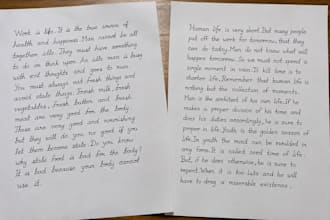 Work is life. It is the true source of
health and happiness. Man cannot be all
together idle. They must have something
to do or think upon. An idle man is busy
with evil thoughts and goes to ruin.
You must always eat fresh things and
avoid stale things. Fresh milk, fresh
vegetables, fresh butter and fresh
meat are very good for the body.
These are very good and nourishing
but they will do you no good if you
let them become stale. Do you know
why stale food is bad for the body?
It is bad because your body cannot
use it.
Human life is very short. But many people
put off the work for tomorrow, that they
can do today. Man do not know what will
happen tomorrow. So we must not spend a
single moment in vain. To kill time is to
shorten life. Remember that human life is
nothing but the collection of moments.
Man is the architect of his own life. If he
makes a proper division of his time and
does his duties accordingly, he is sure to
prosper in life. Youth is the golden season of
life. In youth the mind can be moulded in
any form. It is called seed time of life.
But, if he does otherwise, he is sure to
repent. When it is too late and he will
have to drag a miserable existence.